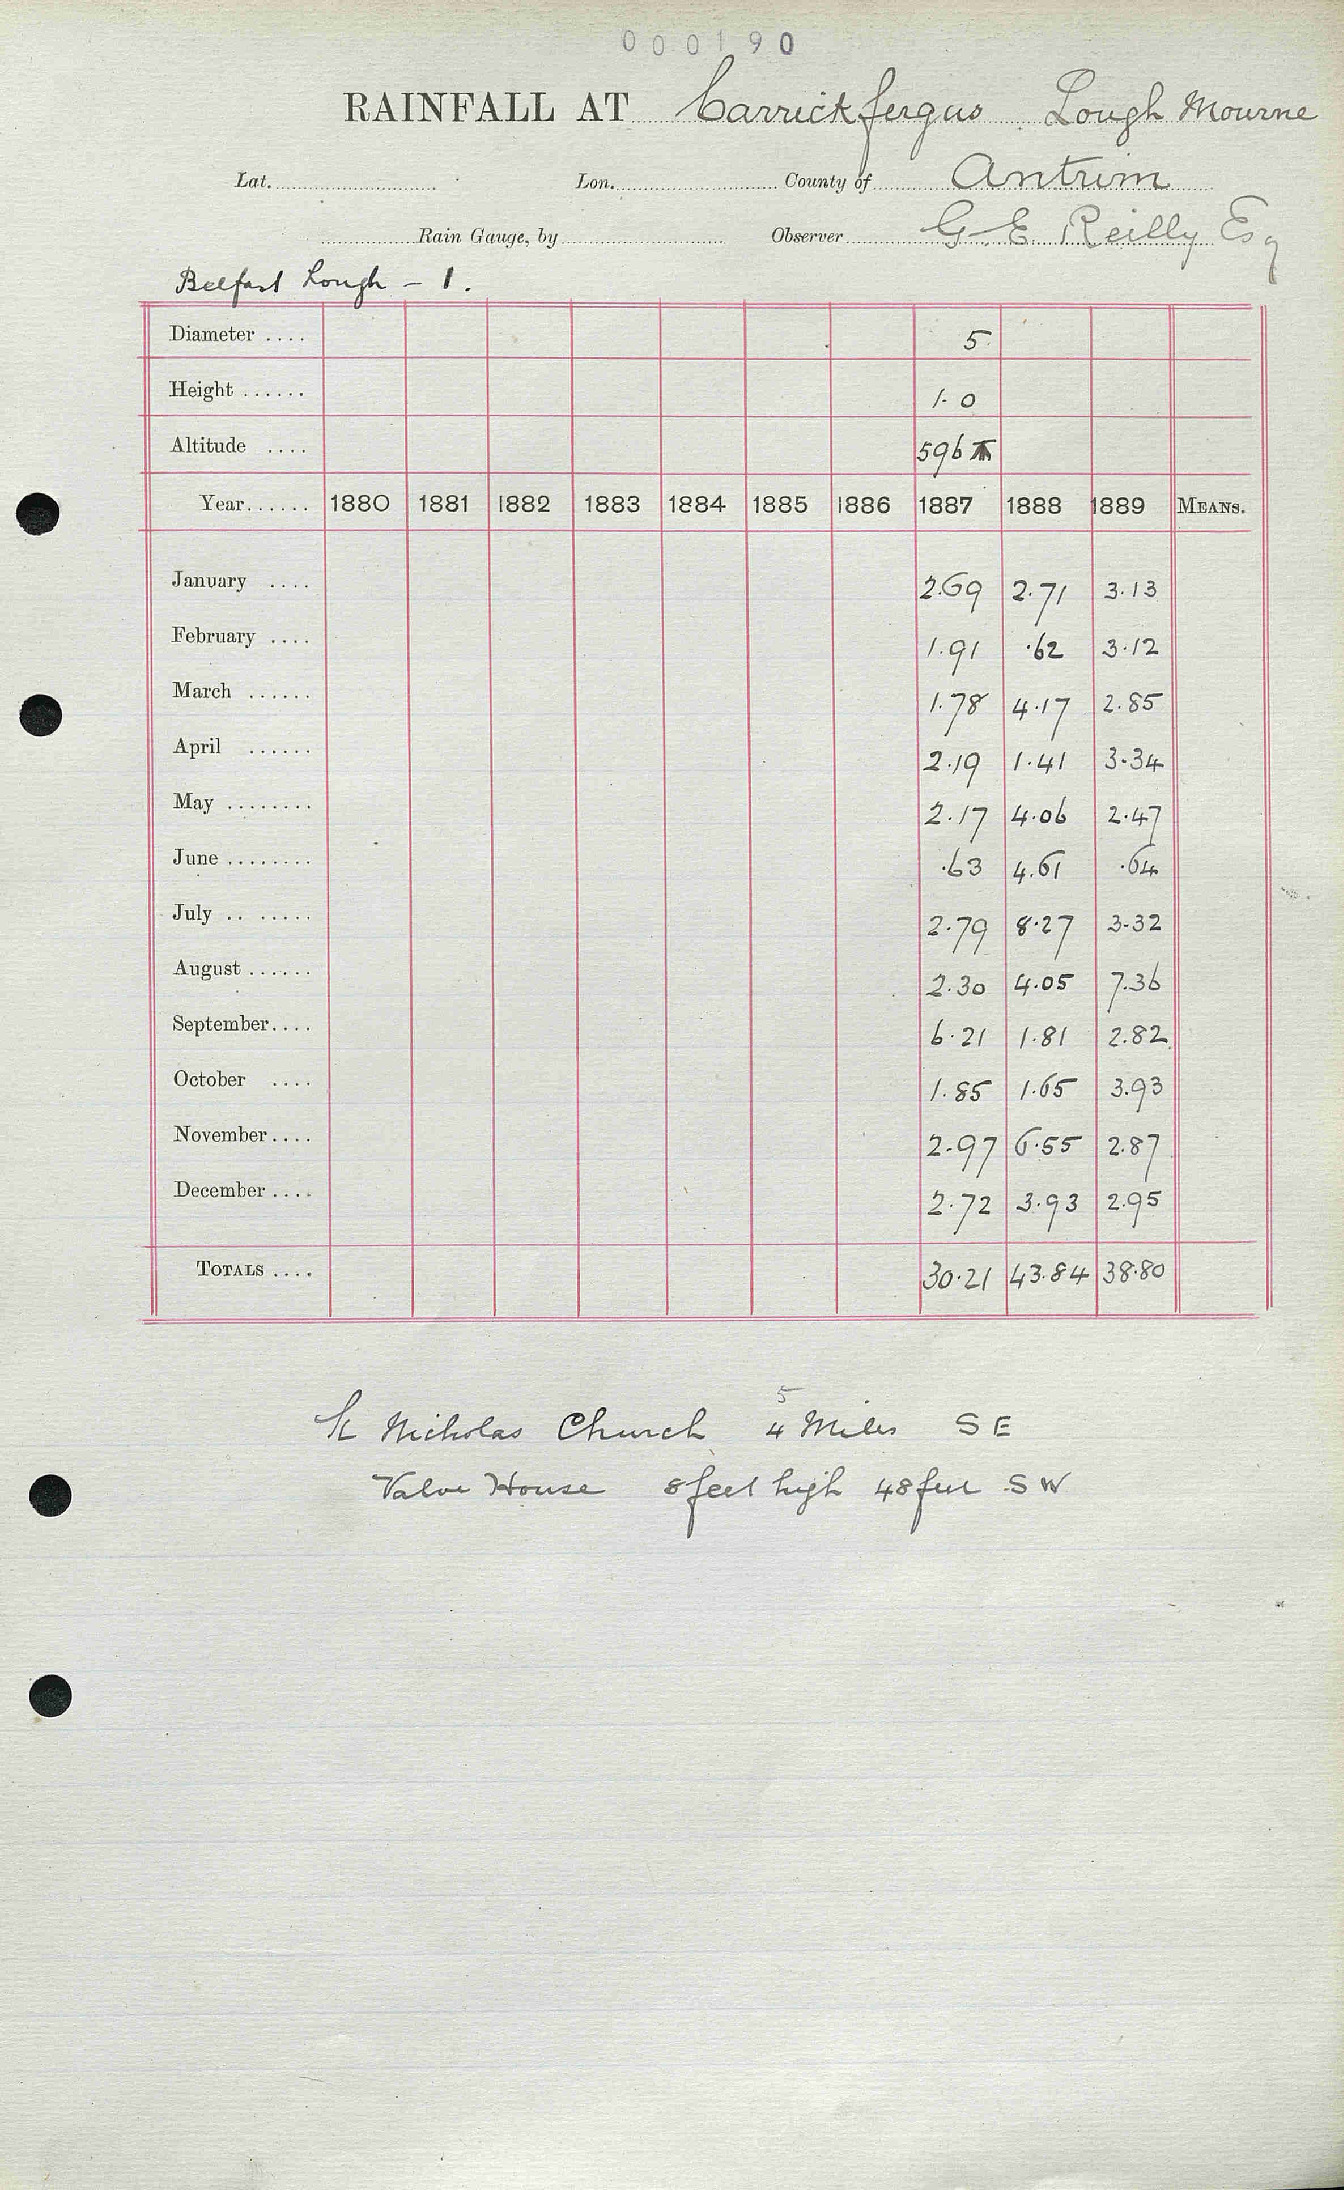 000190
RAINFALL AT Carrickfergus Lough Mourne
Lat. Lon. County of Antrim
Rain Gauge, by Observer G. E. Reilly Esq
Belfast Lough – 1.
Diameter .... 5
Height ...... 1.0
Altitude .... 596
Year...... 1880 1881 1882 1883 1884 1885 1886 1887 1888 1889 MEANS.
January .... 2.69 2.71 3.13
February .... 1.91 .62 3.12
March ...... 1.78 4.17 2.85
April ...... 2.19 1.41 3.34
May ........ 2.17 4.06 2.47
June ........ .63 4.61 .64
July .. ..... 2.79 8.27 3.32
August ...... 2.30 4.05 7.36
September.... 6.21 1.81 2.82
October .... 1.85 1.65 3.93
November.... 2.97 6.55 2.87
December.... 2.72 3.93 2.95
TOTALS .... 30.21 43.84 38.80
5
St Nicholas Church 4 Miles SE
Valve House 8 feet high 48 feet SW